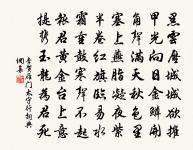 黑雲壓城城欲摧
甲光向日金鱗開
角聲滿天秋色裏
塞上燕脂凝夜紫
半卷紅旗臨易水
霜重鼓寒聲不起
報君黃金臺上意
提攜玉龍為君死
李賀雁門太守行